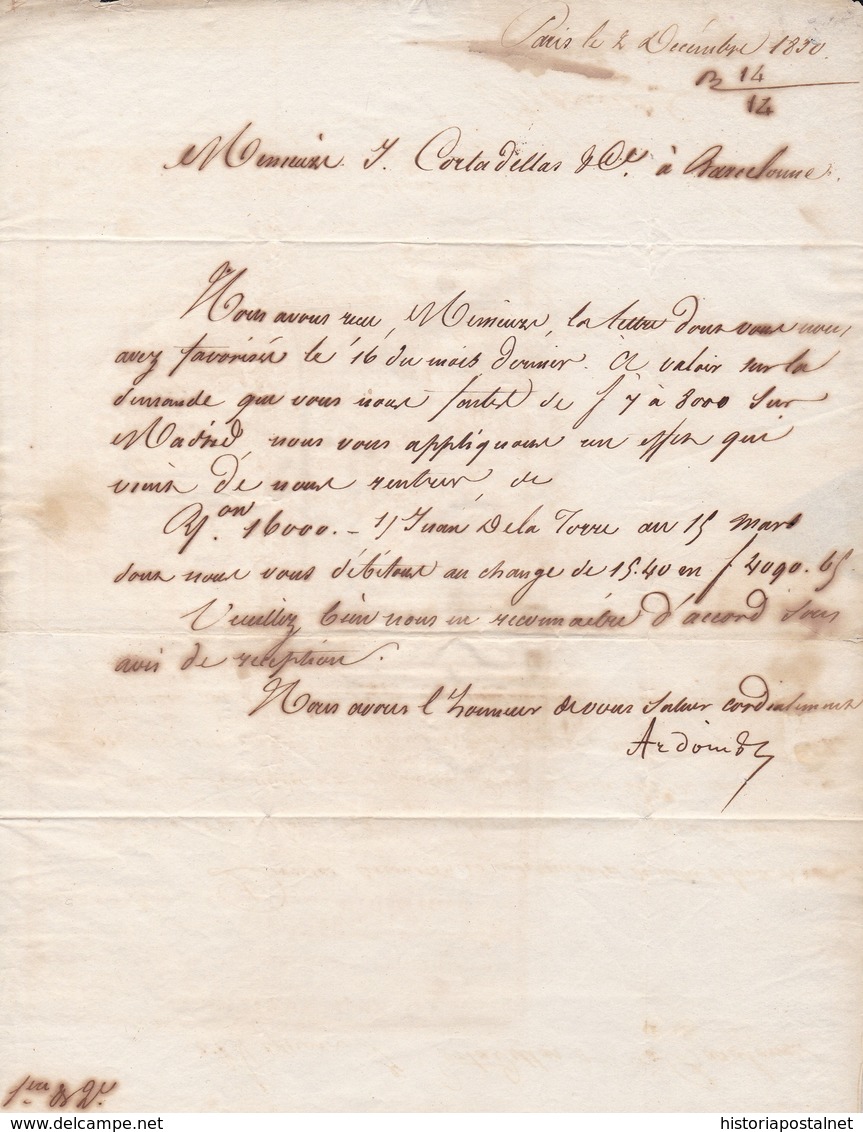 Paris le 2 Décembre 1830.
R 14
14
Messieurs J. Cortadellas & Ce. à Barcelonne.
Nous avons reçu, Messieurs, la lettre dont vous nous
avez favorisés le 16 du mois dernier. A valoir sur la
demande que vous nous faites de f 7 à 8000 sur
Madrid nous vous appliquons un effet qui
vient de nous rentrer, de
Rs.on 16000. – s/ Juan De la Torre au 15 mars
dont nous vous débitons au change de 15.40 en f 4090.65
Veuillez bien nous en reconnaître d'accord sous
avis de réception.
Nous avons l'honneur de vous saluer cordialement
Ardoin &
1ere & 2e.
DELCAMPE.net
historiapostalnet